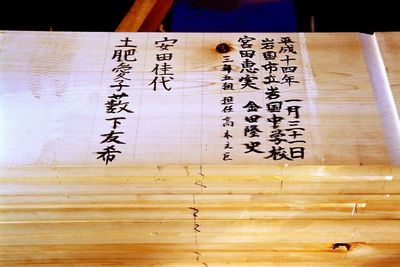 平成十四年 一月三十一日
岩国市立岩国中学校
宮田恵実 金田隆史
三年五組 担任 高木文臣
安田佳代
土肥愛子 藪下友希